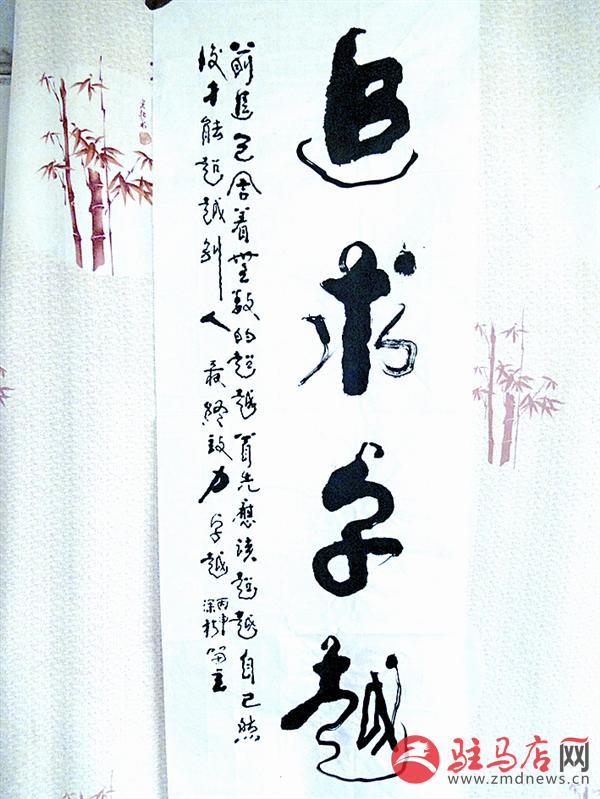 追求卓越
前進包含着無數的超越首先應該超越自己然
後才能超越别人最終致力卓越
丙申
深秋
驻马店网
www.zmdnews.cn